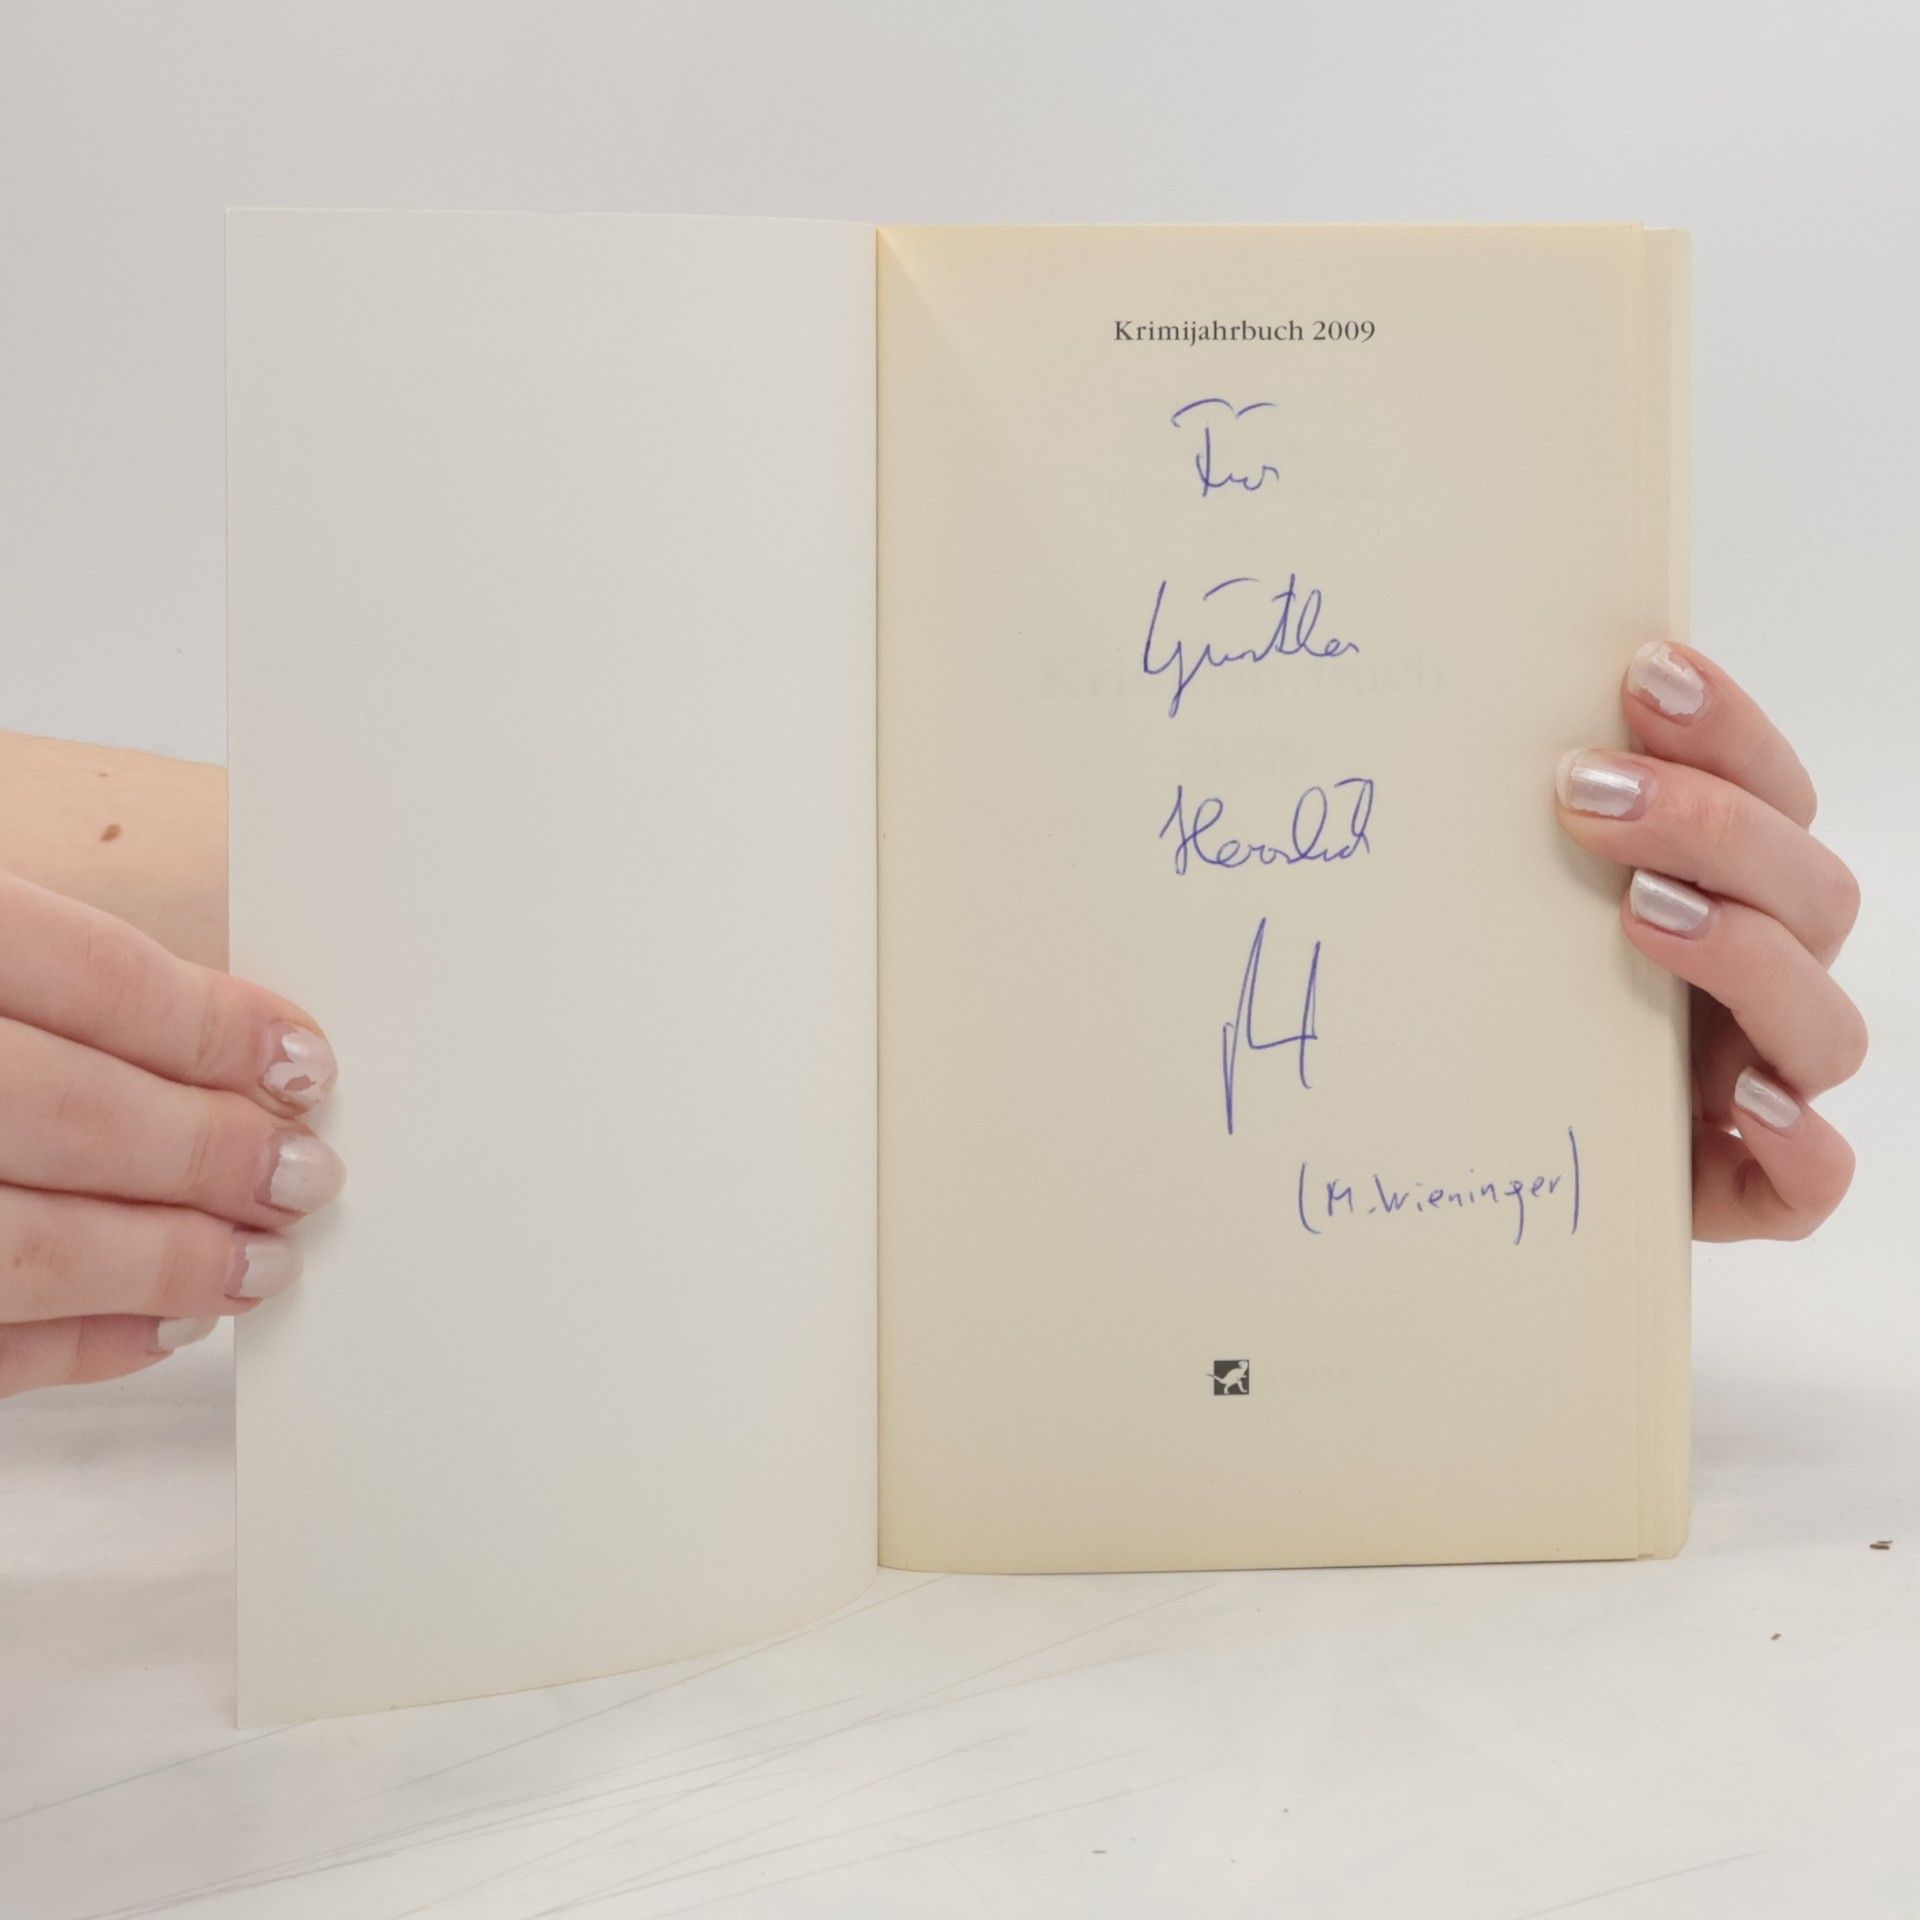 Krimijahrbuch 2009
Für
Günther
Herzlich
(M. Wieninger)